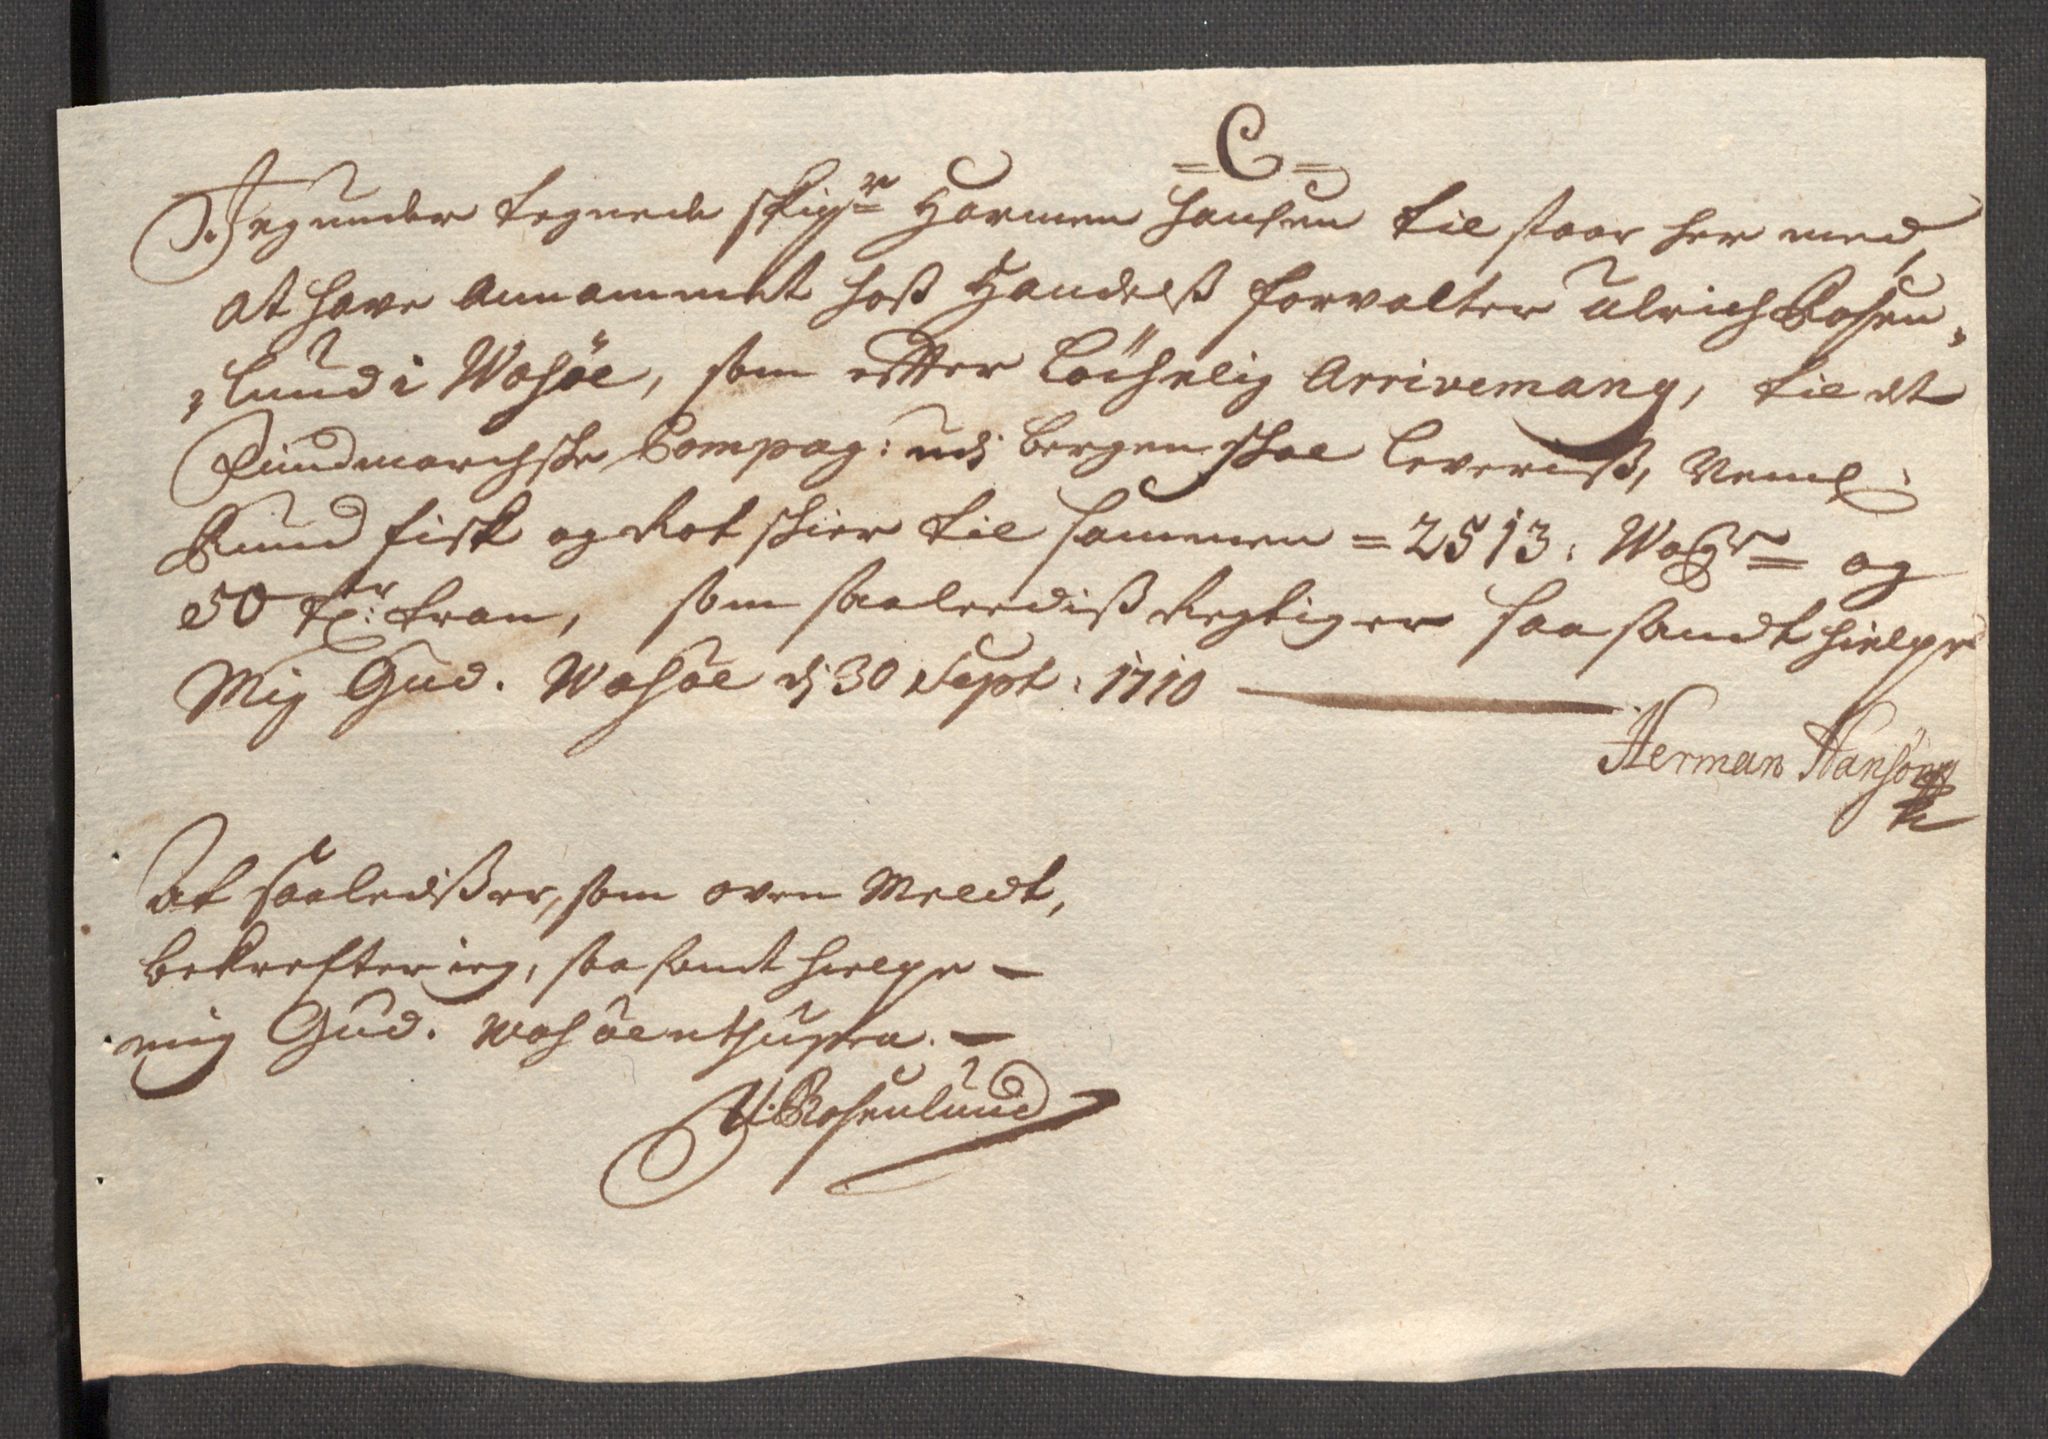 =C=
Jeg under tegnede skipr Harmen Hansen til staar her med,
at have Annammet hoß Handelß forvalter Ulrich Rosen„
„lund i Wasöe, som effter Löchelig Arrivemang, til det
Findmarchske Compag: udj bergen skal leveriß, Neml:
Rund fisk og Rotskier til sammen = 2513: Wogr = og
50 tr: tran, som saaleediß Rigtig er saa sandt hielpe
Mig Gud. Wasöe dj 30 Sept: 1710
Herman Hansön
At saaledißer, som oven Meldt,
bekrefter ieg, saa sandt hielpe
mig Gud. Wasöe ut supra.
U: Rosenlund